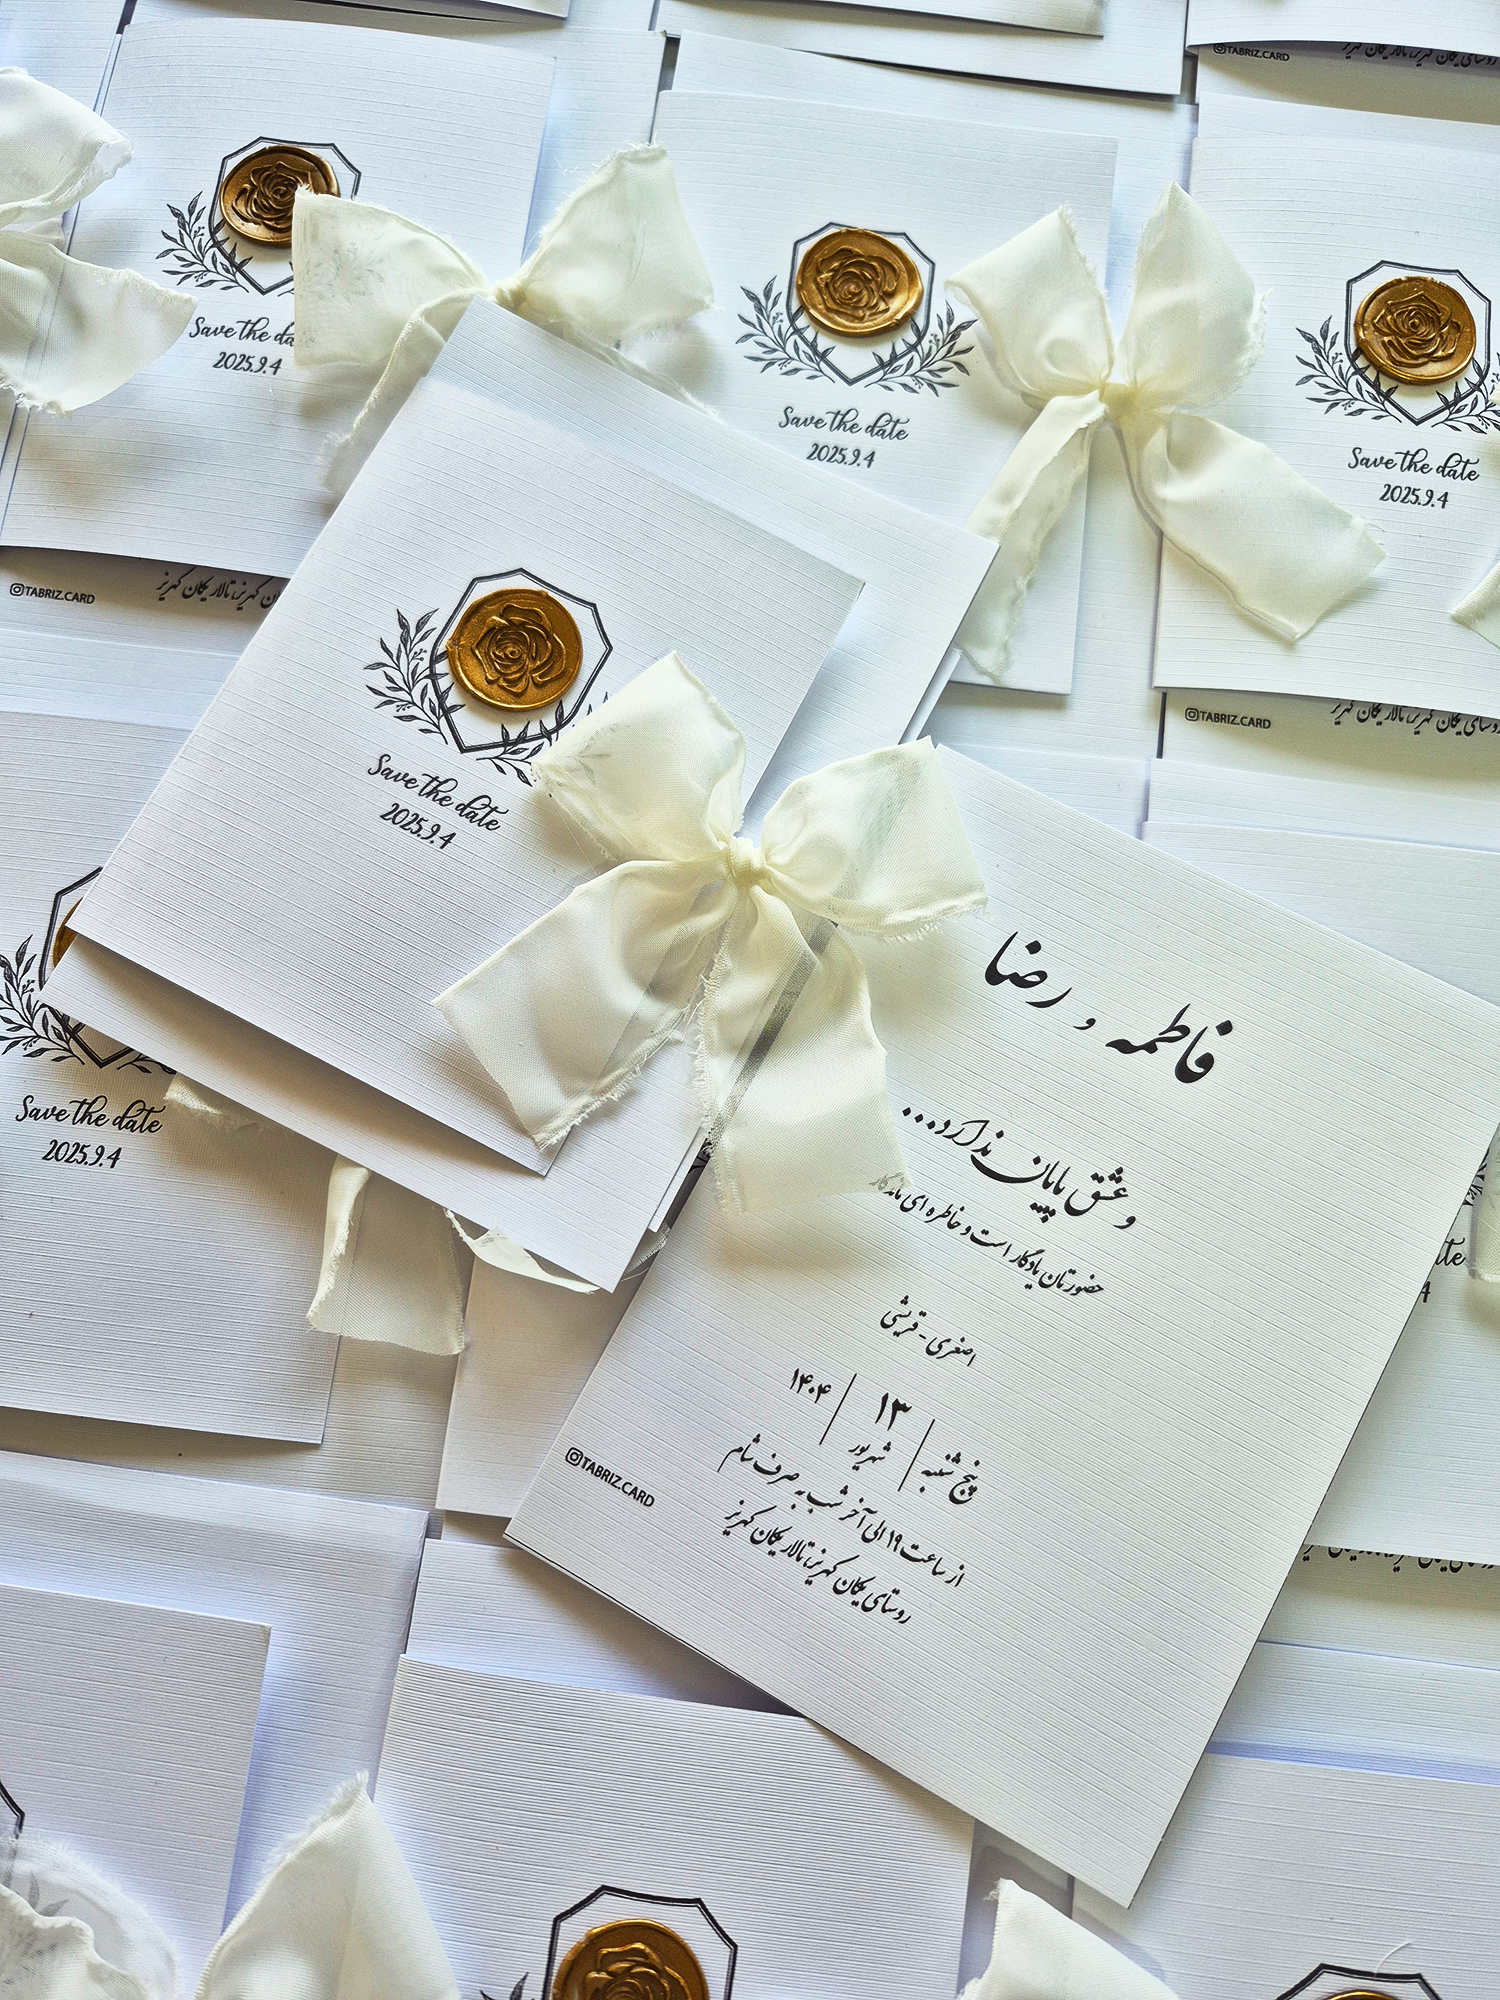 TABRIZ.CARD
روستای یکان کهریز، تالار یکان کهریز
Save the da
2025.9.4
Save the date
2025.9.4
Save the date
2025.9.4
TABRIZ.CARD
یکان کهریز، تالار یکان کهریز
TABRIZ.CARD
روستای یکان کهریز، تالار یکان کهریز
Save the date
2025.9.4
Save the date
2025.9.4
فاطمه و رضا
و عشق پایان ندارد...
حضورتان یادگار است و خاطره ای ماندگار
اصغری - قریشی
پنج شنبه | ۱۳ شهریور | ۱۴۰۴
از ساعت ۱۹ الی آخر شب به صرف شام
روستای یکان کهریز، تالار یکان کهریز
TABRIZ.CARD
te
4